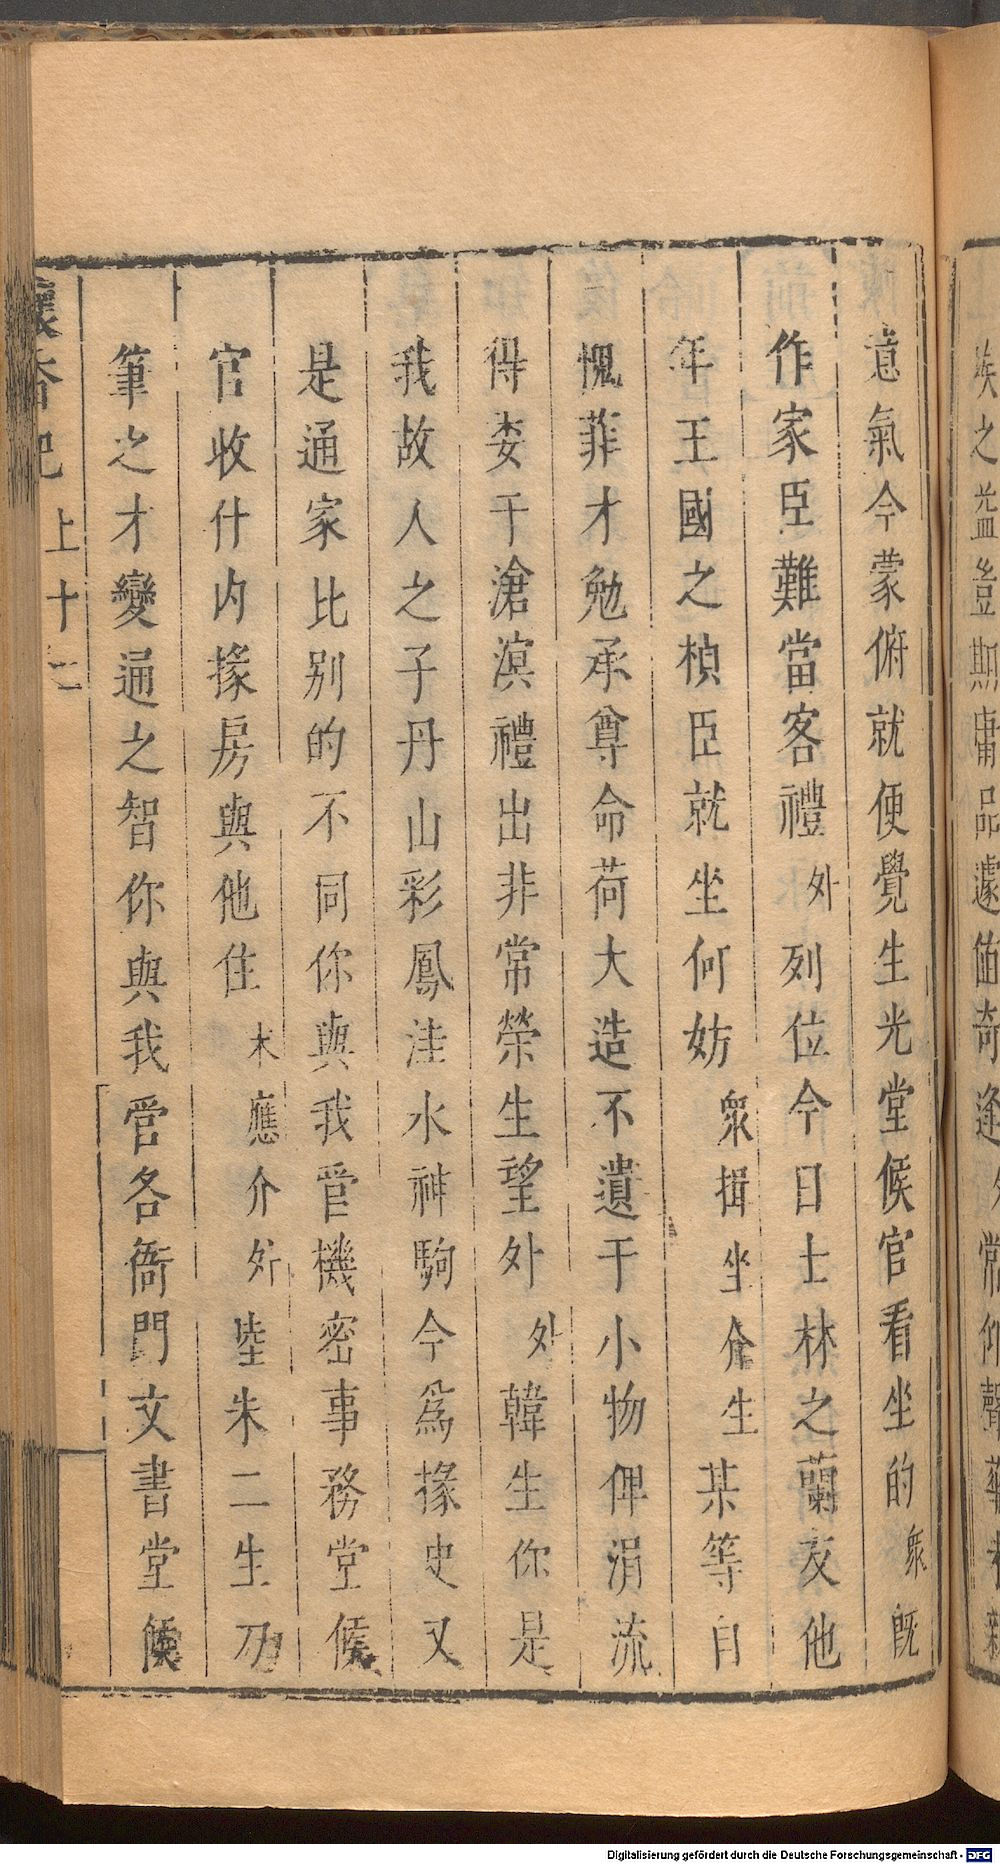 意氣今蒙俯就便覺生光堂候官看坐的衆既
作家臣難當客禮外列位今日士林之蘭友他
年王國之楨臣就坐何妨衆揖坐介生某等自
愧菲才勉承尊命荷大造不遺于小物俾涓流
得委于滄溟禮出非常榮生望外外韓生你是
我故人之子丹山彩鳳洼水神駒今爲掾史又
是通家比别的不同你與我管機密事務堂候
官收什内掾房與他住末應介外陸朱二生乃
筆之才變通之智你與我管各衙門文書堂候
懷香記 上十二
族之益豈期庸品遽値奇逢外常仰聲華
Digitalisierung gefördert durch die Deutsche Forschungsgemeinschaft - DFG